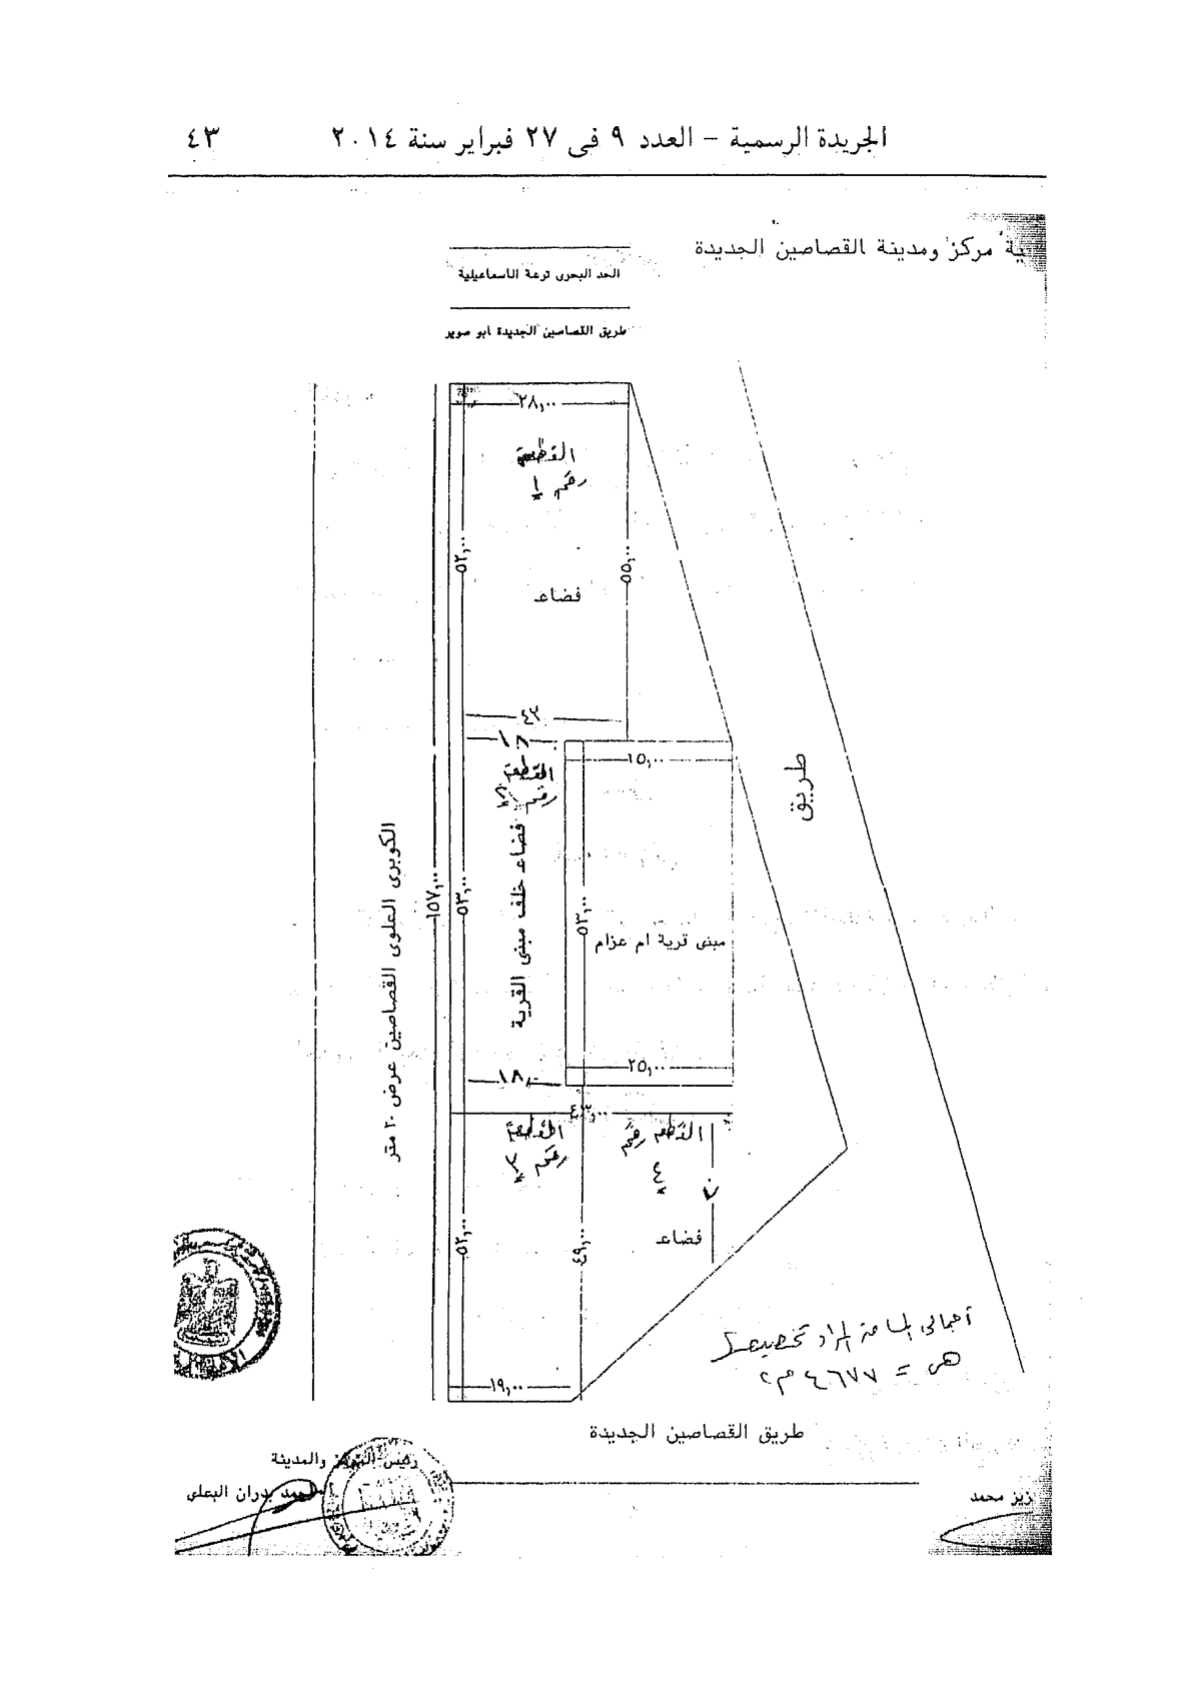 الجريدة الرسمية – العدد ٩ فى ٢٧ فبراير سنة ٢٠١٤ ٤٣
ية مركز ومدينة القصاصين الجديدة
الحد البحرى ترعة الاسماعيلية
طريق القصاصين الجديدة ابو صوير
٢٨,٠٠
القطعة
رقم ١
٥٢,٠٠
٥٥,٠٠
فضاء
٤٣
١٨
القطعة
رقم ٢
١٥,٠٠
طريق
فضاء خلف مبنى القرية
الكوبرى العلوى القصاصين عرض ٢٠ متر
١٥٧,٠٠
٥٣,٠٠
٥٣,٠٠
مبنى قرية ام عزام
٢٥,٠٠
١٨,٠
٤٣,٠٠
القطعة
رقم ٣
القطعه رقم
٤
٥٢,٠٠
٤٩,٠٠
فضاء
أجمالى المساحة المراد تخصيصها
هى = ٤٦٧٧ م٢
١٩,٠٠
طريق القصاصين الجديدة
رئيس المركز والمدينة
احمد بدران البعلى
زيز محمد